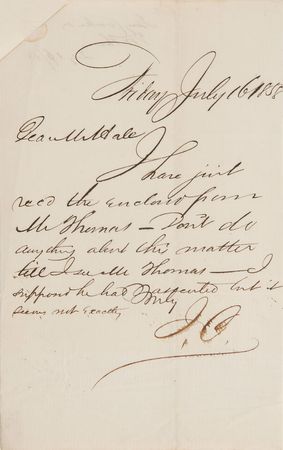 Friday July 16 1858
Dear Mr Hale
I have just
recd the enclosd from
Mr Thomas – Don't do
anything about this matter
till I see Mr Thomas – I
supposd he had assented but it
seems not exactly
Truly
J.